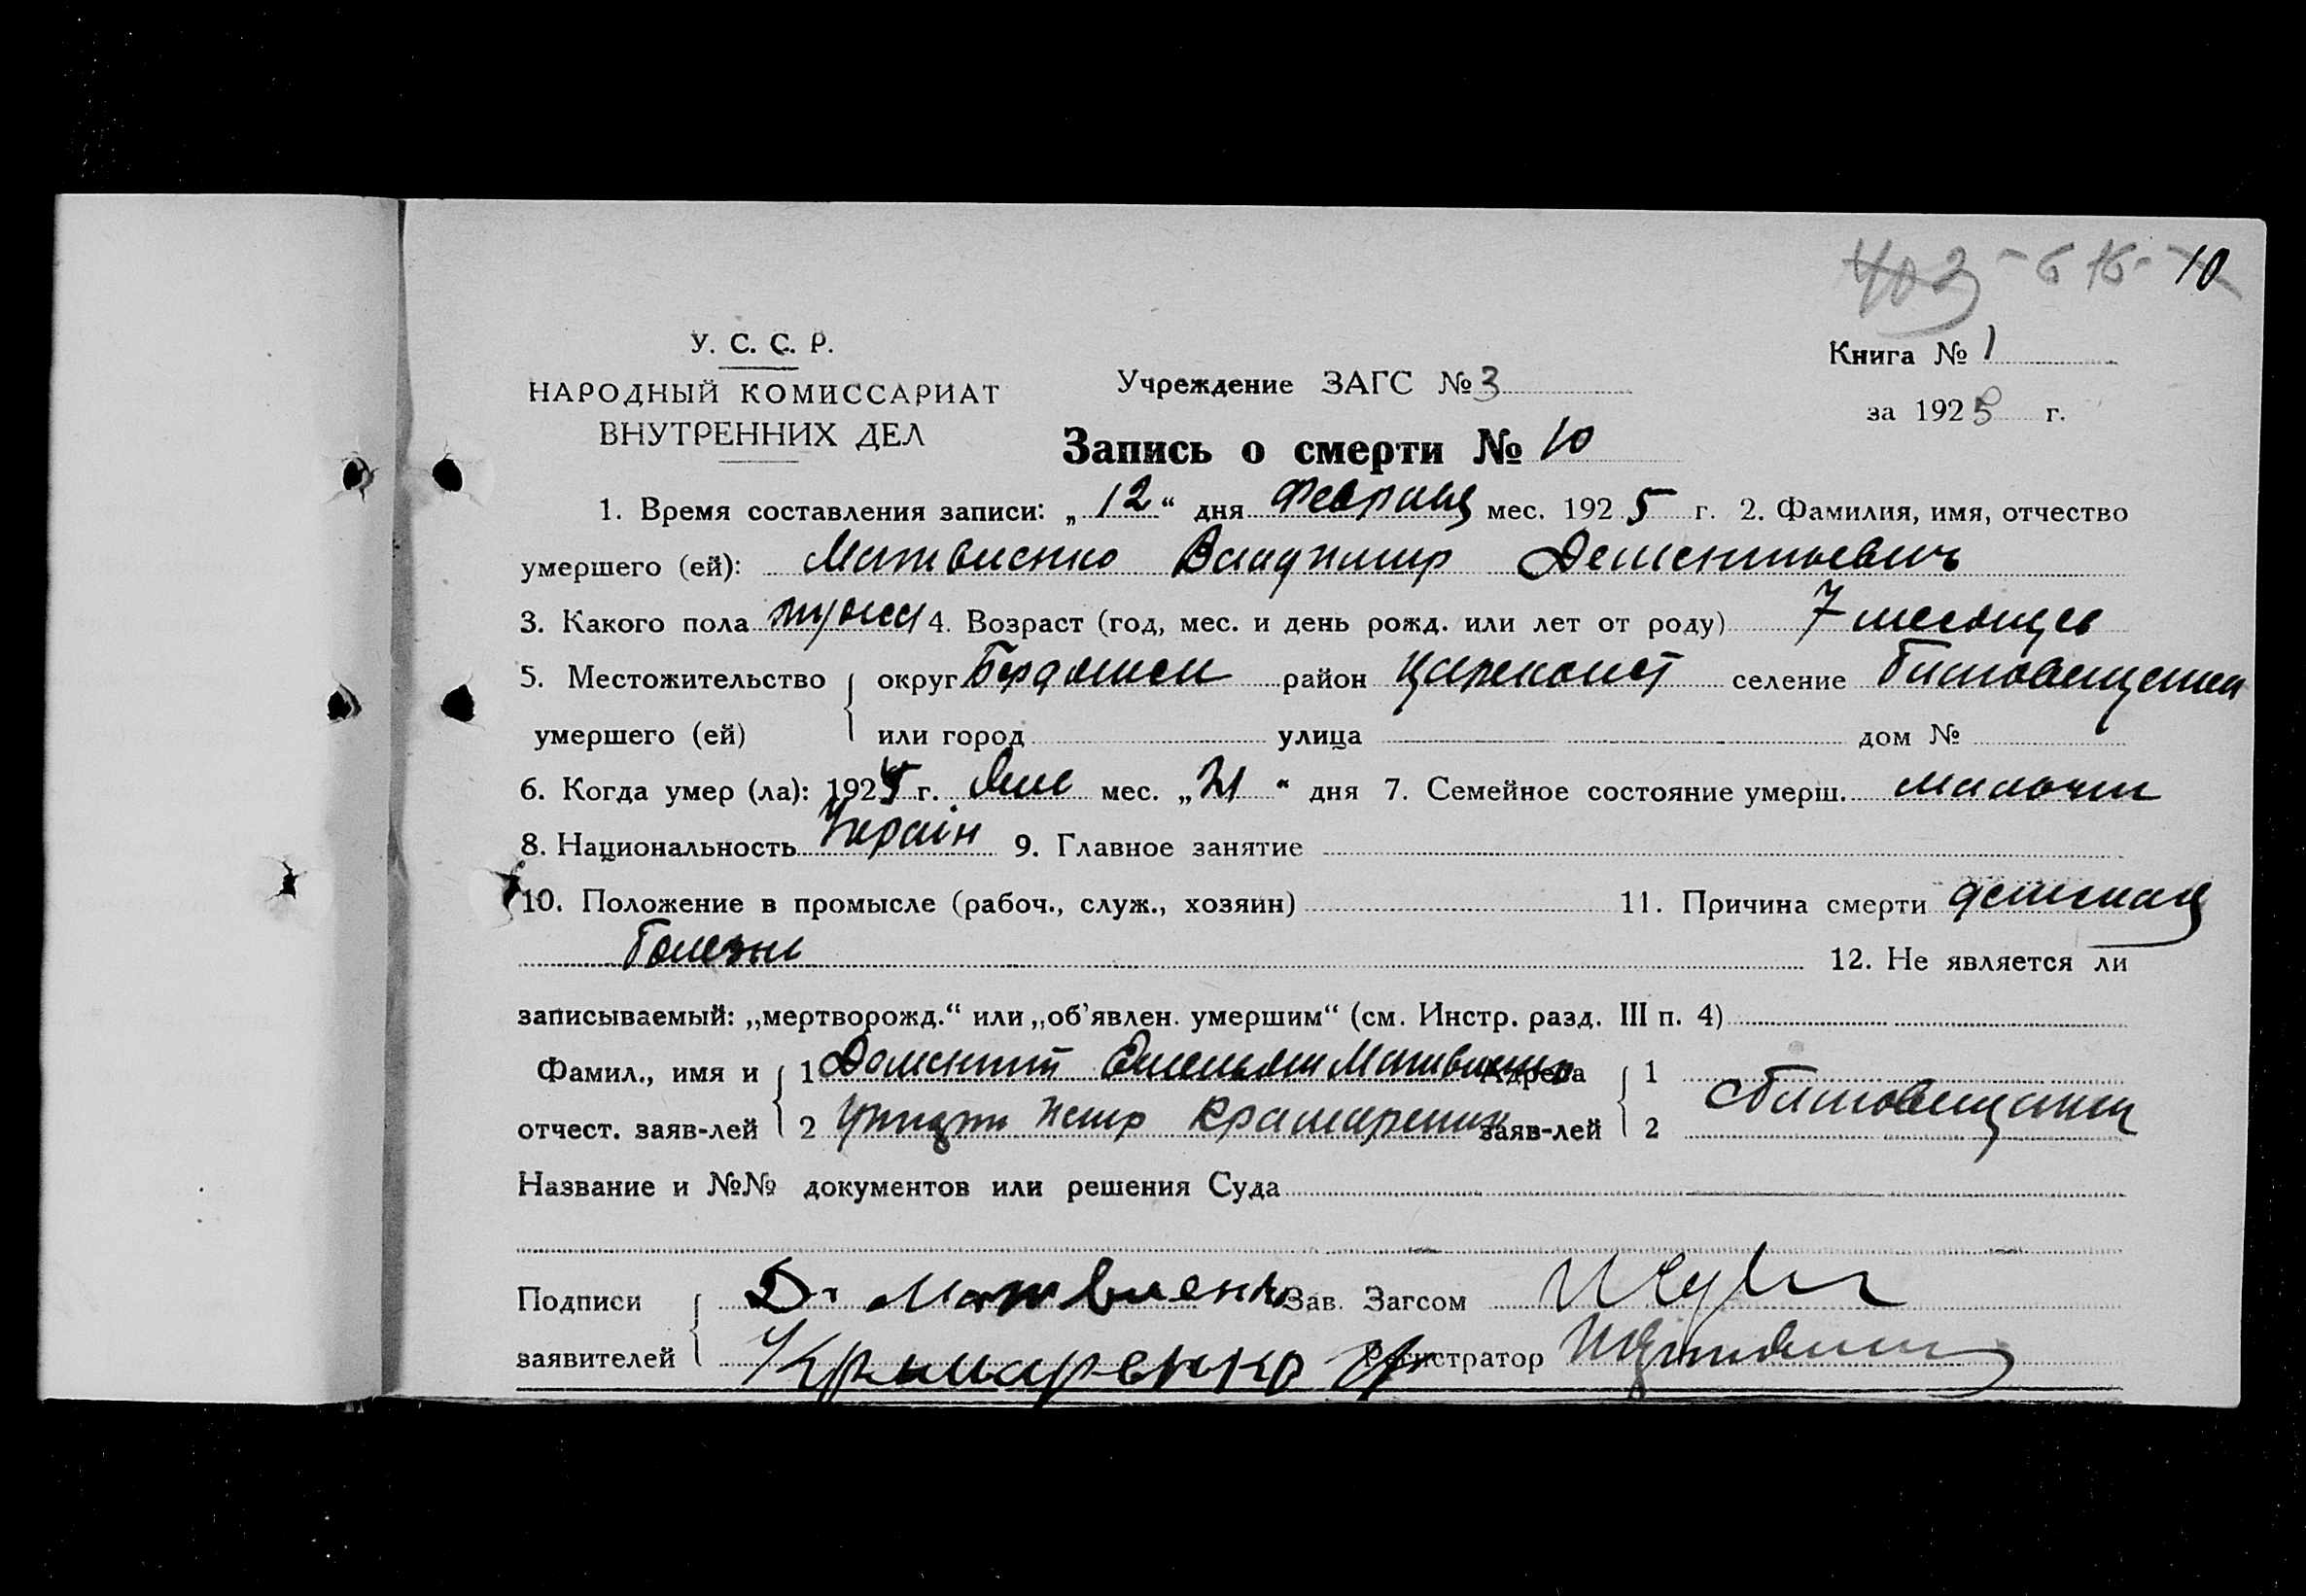 10
У. С. С. Р.
НАРОДНЫЙ КОМИССАРИАТ
ВНУТРЕННИХ ДЕЛ
Учреждение ЗАГС № 3
Книга № 1
за 1925 г.
Запись о смерти № 10
1. Время составления записи: „12“ дня Февраля мес. 1925 г. 2. Фамилия, имя, отчество
умершего (ей): Матвиенко Владимир Дементьевич
3. Какого пола мужск 4. Возраст (год, мес. и день рожд. или лет от роду) 7 месяцев
5. Местожительство округ Бердянск район Цареконст селение Благовещенка
умершего (ей) или город улица дом №
6. Когда умер (ла): 192 г. мес. „ “ дня 7. Семейное состояние умерш.
8. Национальность Украін 9. Главное занятие
10. Положение в промысле (рабоч., служ., хозяин) 11. Причина смерти детская
болезнь
12. Не является ли
записываемый: „мертворожд.“ или „об'явлен. умершим“ (см. Инстр. разд. III п. 4)
Фамил., имя и 1 Дементий Емельян Матвиенко Адреса 1
отчест. заяв-лей 2 Петр Крамаренко заяв-лей 2 с Благовещенка
Название и №№ документов или решения Суда
Подписи Д. Матвиенко Зав. Загсом
заявителей Крамаренко Регистратор